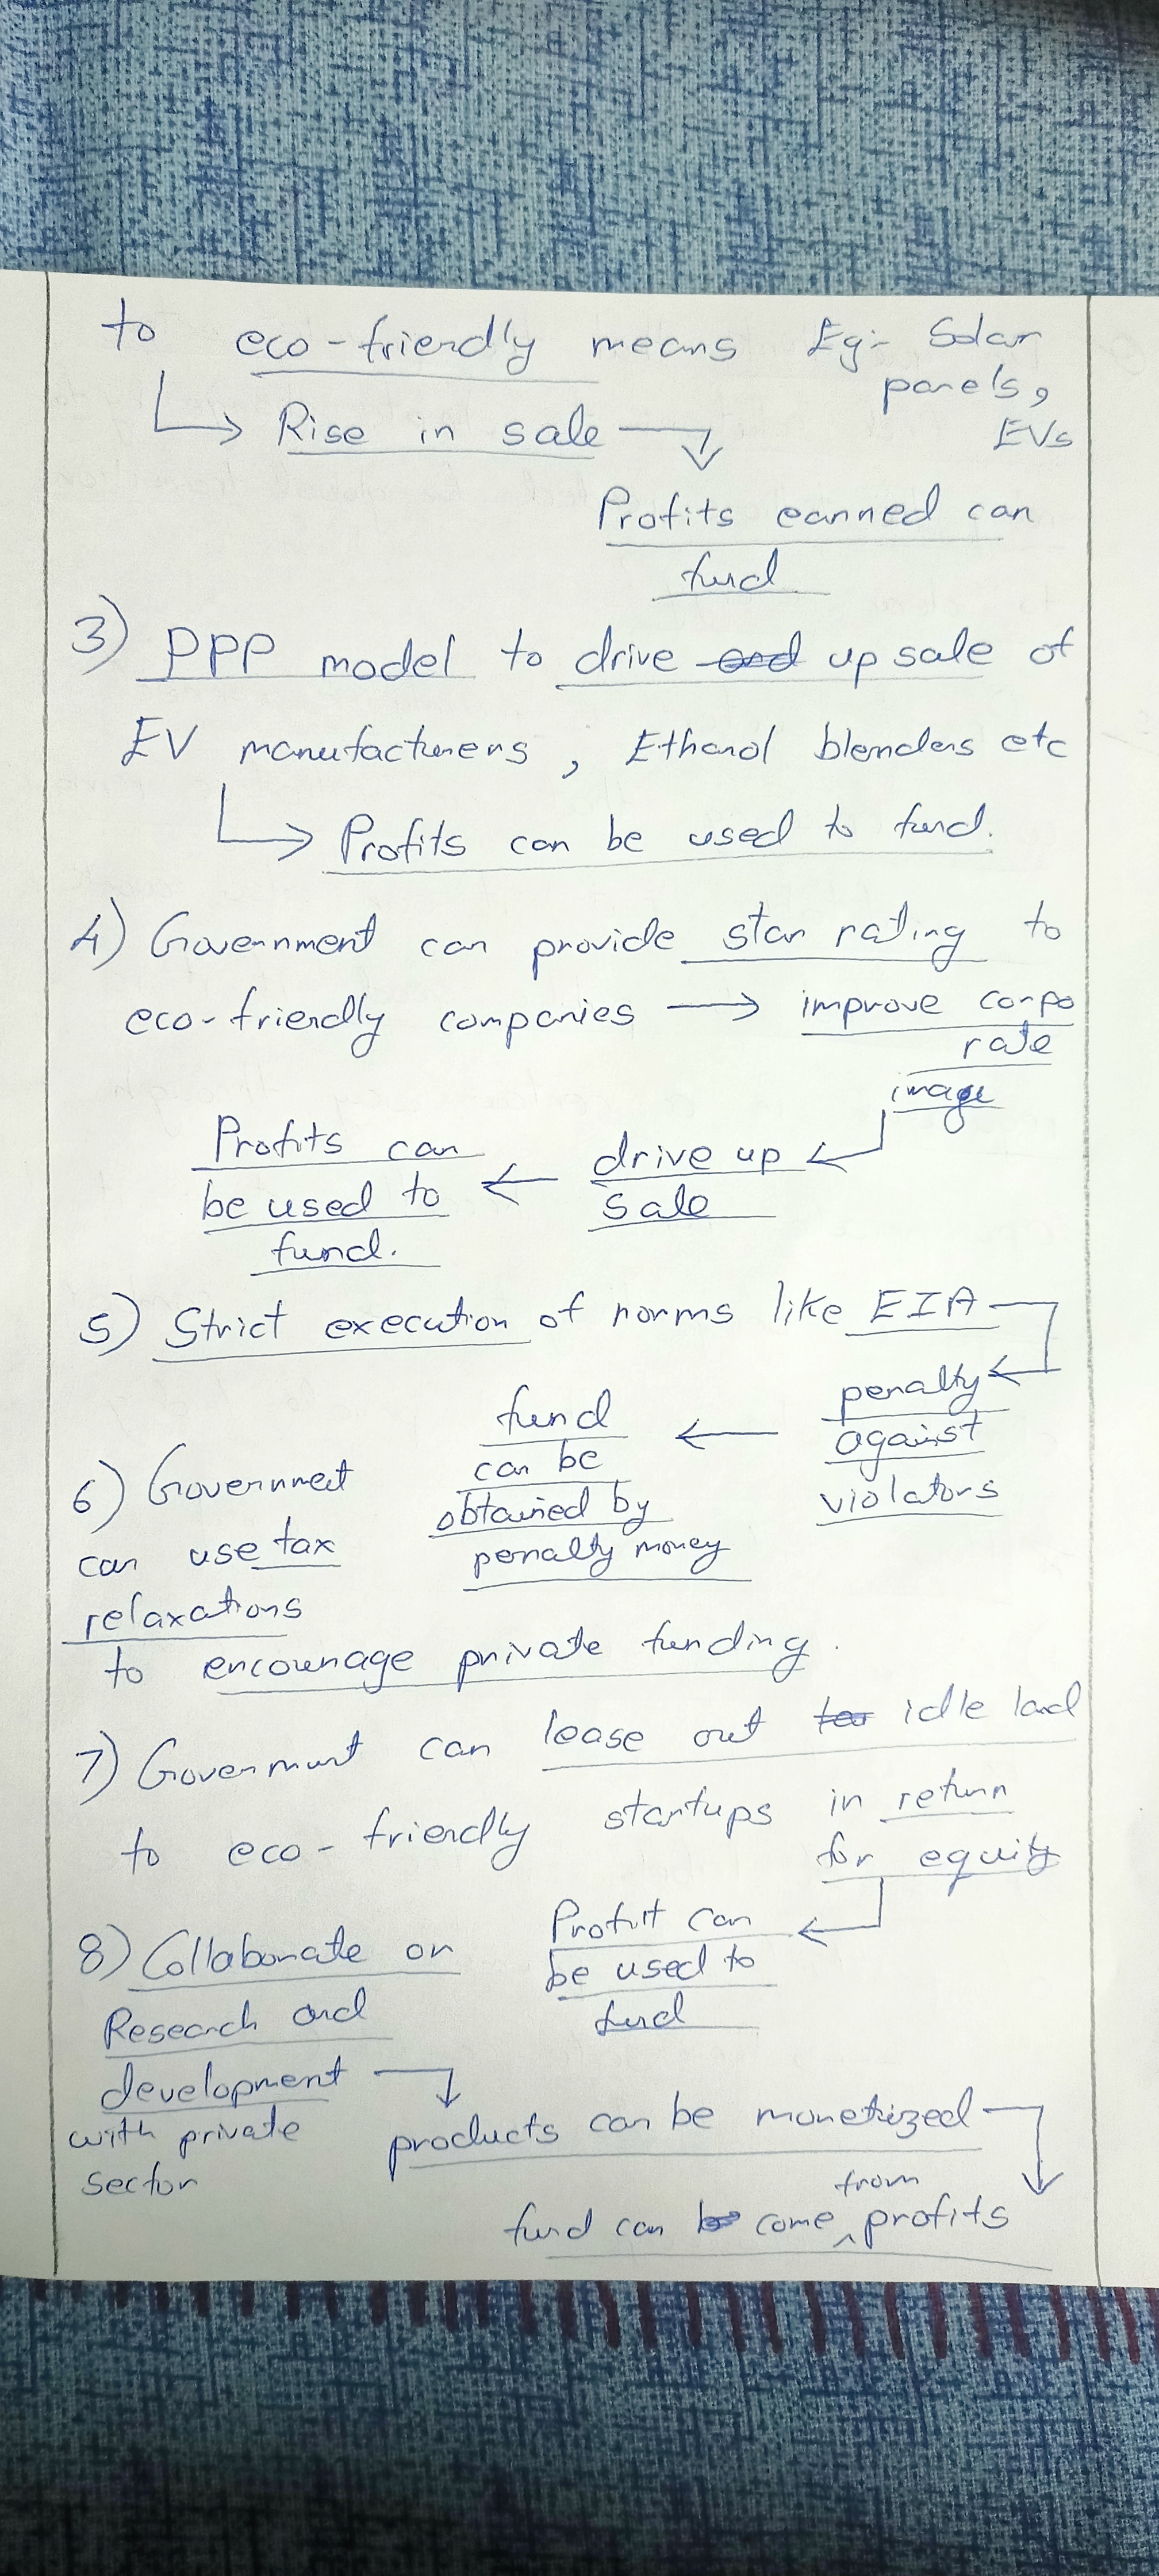 to eco-friendly means Eg:- Solar
panels,
EVs
↳ Rise in sale
Profits earned can
fund
3) PPP model to drive and up sale of
EV manufacturers, Ethanol blenders etc
↳ Profits can be used to fund.
4) Government can provide star rating to
eco-friendly companies → improve corpo
rate
image
drive up
sale
Profits can
be used to
fund.
5) Strict execution of norms like EIA
penalty
against
violators
fund
can be
obtained by
penalty money
6) Government
can use tax
relaxations
to encourage private funding.
7) Government can lease out idle land
to eco-friendly startups in return
for equity
Profit can
be used to
fund
8) Collaborate on
Research and
development
with private
sector
products can be monetized
fund can come from profits